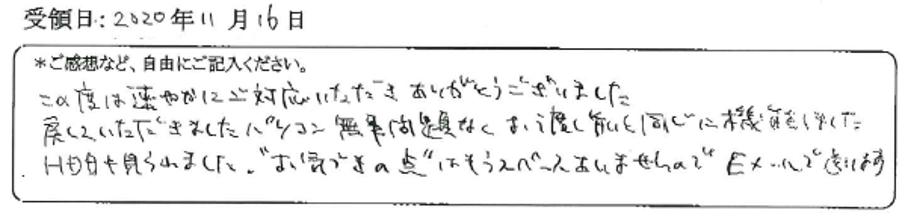 受領日：2020年11月16日
*ご感想など、自由にご記入ください。
この度は速やかにご対応いただきありがとうございました
戻していただきましたパソコン無事問題なくお渡し前と同じに機能しました
中身も見られました。"お気づきの点"はもうスペースありませんので Eメールで送ります